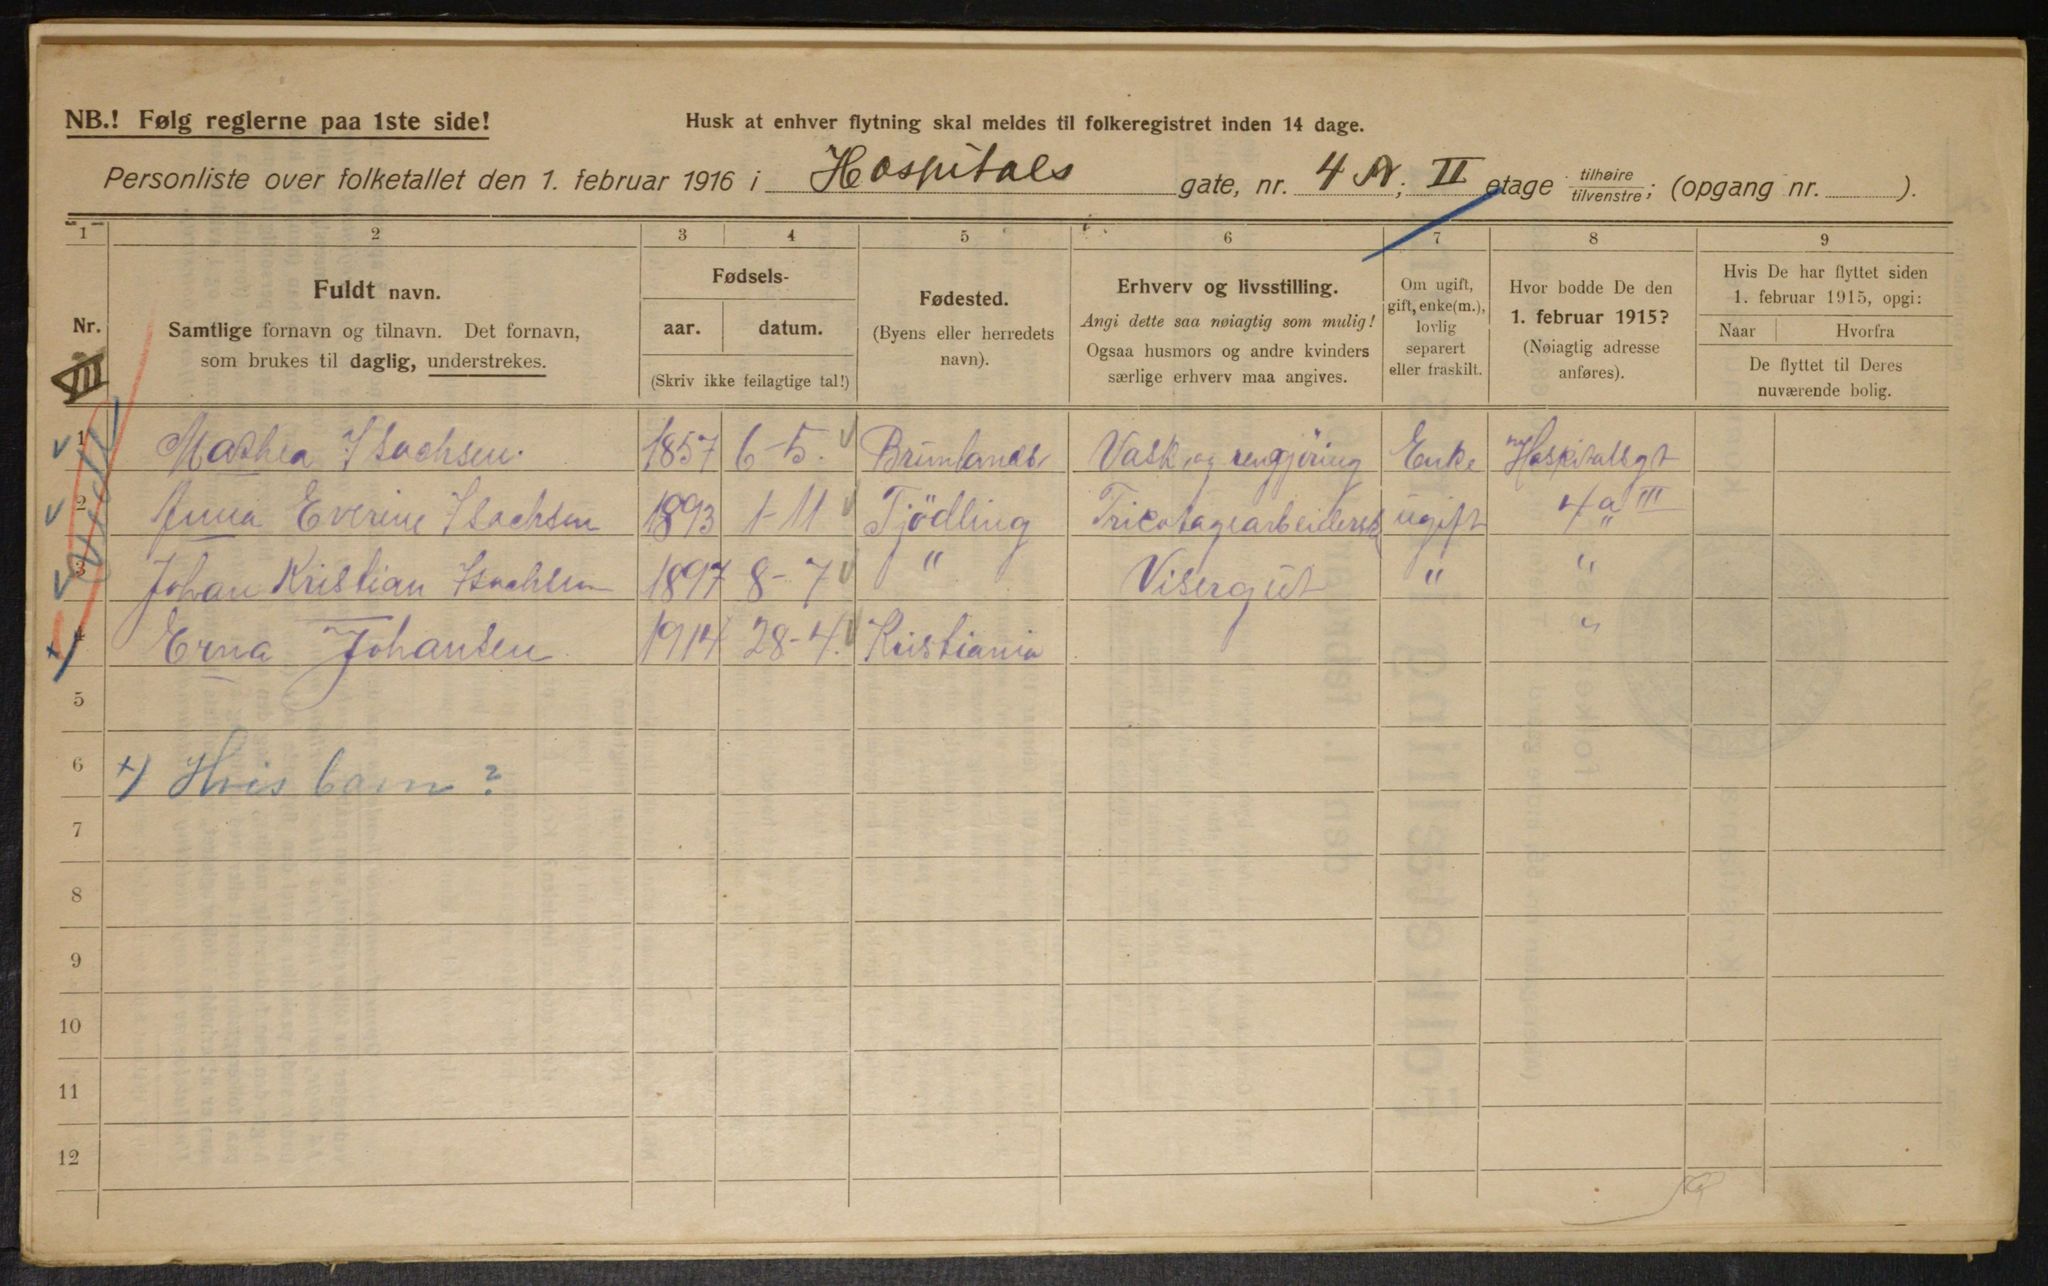 NB.! Følg reglerne paa 1ste side!
Husk at enhver flytning skal meldes til folkeregistret inden 14 dage.
Personliste over folketallet den 1. februar 1916 i Hospitals gate, nr. 4 A; II etage tilhøire / tilvenstre; (opgang nr. ).
1 2 3 4 5 6 7 8 9
Nr.
VII
Fuldt navn.
Samtlige fornavn og tilnavn. Det fornavn,
som brukes til daglig, understrekes.
Fødsels-
aar. datum.
(Skriv ikke feilagtige tal!)
Fødested.
(Byens eller herredets
navn).
Erhverv og livsstilling.
Angi dette saa nøiagtig som mulig!
Ogsaa husmors og andre kvinders
særlige erhverv maa angives.
Om ugift,
gift, enke(m.),
lovlig
separert
eller fraskilt.
Hvor bodde De den
1. februar 1915?
(Nøiagtig adresse
anføres).
Hvis De har flyttet siden
1. februar 1915, opgi:
Naar Hvorfra
De flyttet til Deres
nuværende bolig.
1 Mathea Isachsen. 1857 6-5. Brunlanes Vask og rengjöring Enke Hospitalsgt
2 Anna Everine Isachsen 1893 1-11 Tjödling Tricotagearbeidersk ugift 4a III
3 Johan Kristian Isachsen 1897 8-7 " Visergut " "
4 Erna Johansen 1914 28-4. Kristiania "
5
6 +) Hvis barn?
7
8
9
10
11
12